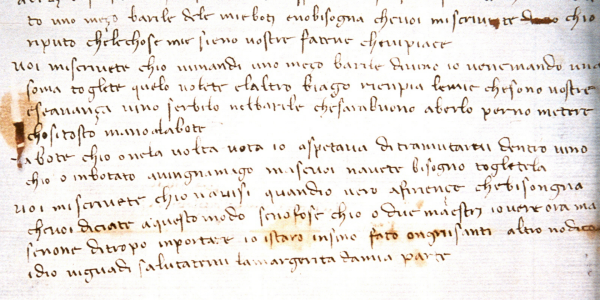 to uno mezo barile dele mie boti e no bisogna che voi mi scrivete
riputo che le chose mie sieno vostre fatene che vi piace
voi mi scrivete chio vi mandi uno mezo barile di vino io ve ne mando una
soma togliete quelo volete e laltro biago riempia le mie che sono vostre
e se avanza vino serbilo nel barile che sara buono averlo per no metere
chosi tosto mano ala bote
a bote chio o nela volta vota io aspetava di tramutarvi dentro vino
chio o inbotato quingnamigo ma se voi navete bisogno togletela
voi mi scrivete chio navisi quando vero a firence che bisongna
che voi diciate a questo modo se no fose chio o due maestri io vere ora ma
se none di tropo inportare io istaro insino fato ongnisanti altro no dicho
idio vi guadi salutatemi la margerita da mia parte